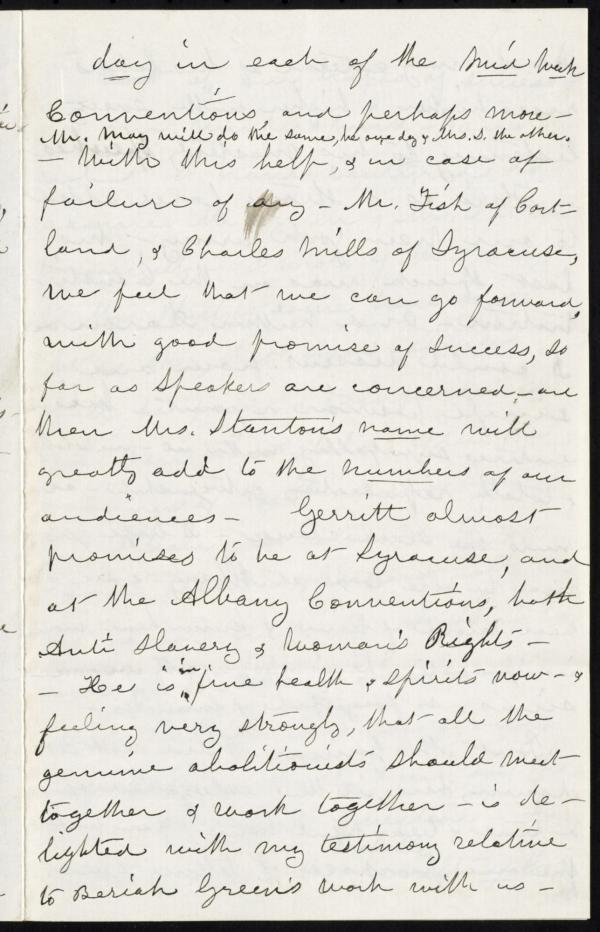 day in each of the mid week
Conventions, and perhaps more -
Mr. May will do the same, he one day & Mrs. S. the other.
- With this help, & in case of
failure of any - Mr. Fish of Cort-
land, & Charles Mills of Syracuse,
we feel that we can go forward,
with good promise of success, so
far as speakers are concerned, - and
then Mrs. Stanton's name will
greatly add to the numbers of our
audiences - Gerritt almost
promises to be at Syracuse, and
at the Albany Conventions, both
Anti Slavery & Woman's Rights -
- He is in fine health & spirits now - &
feeling very strongly, that all the
genuine abolitionists should meet
together & work together - is de-
lighted with my testimony relative
to Beriah Green's work with us -